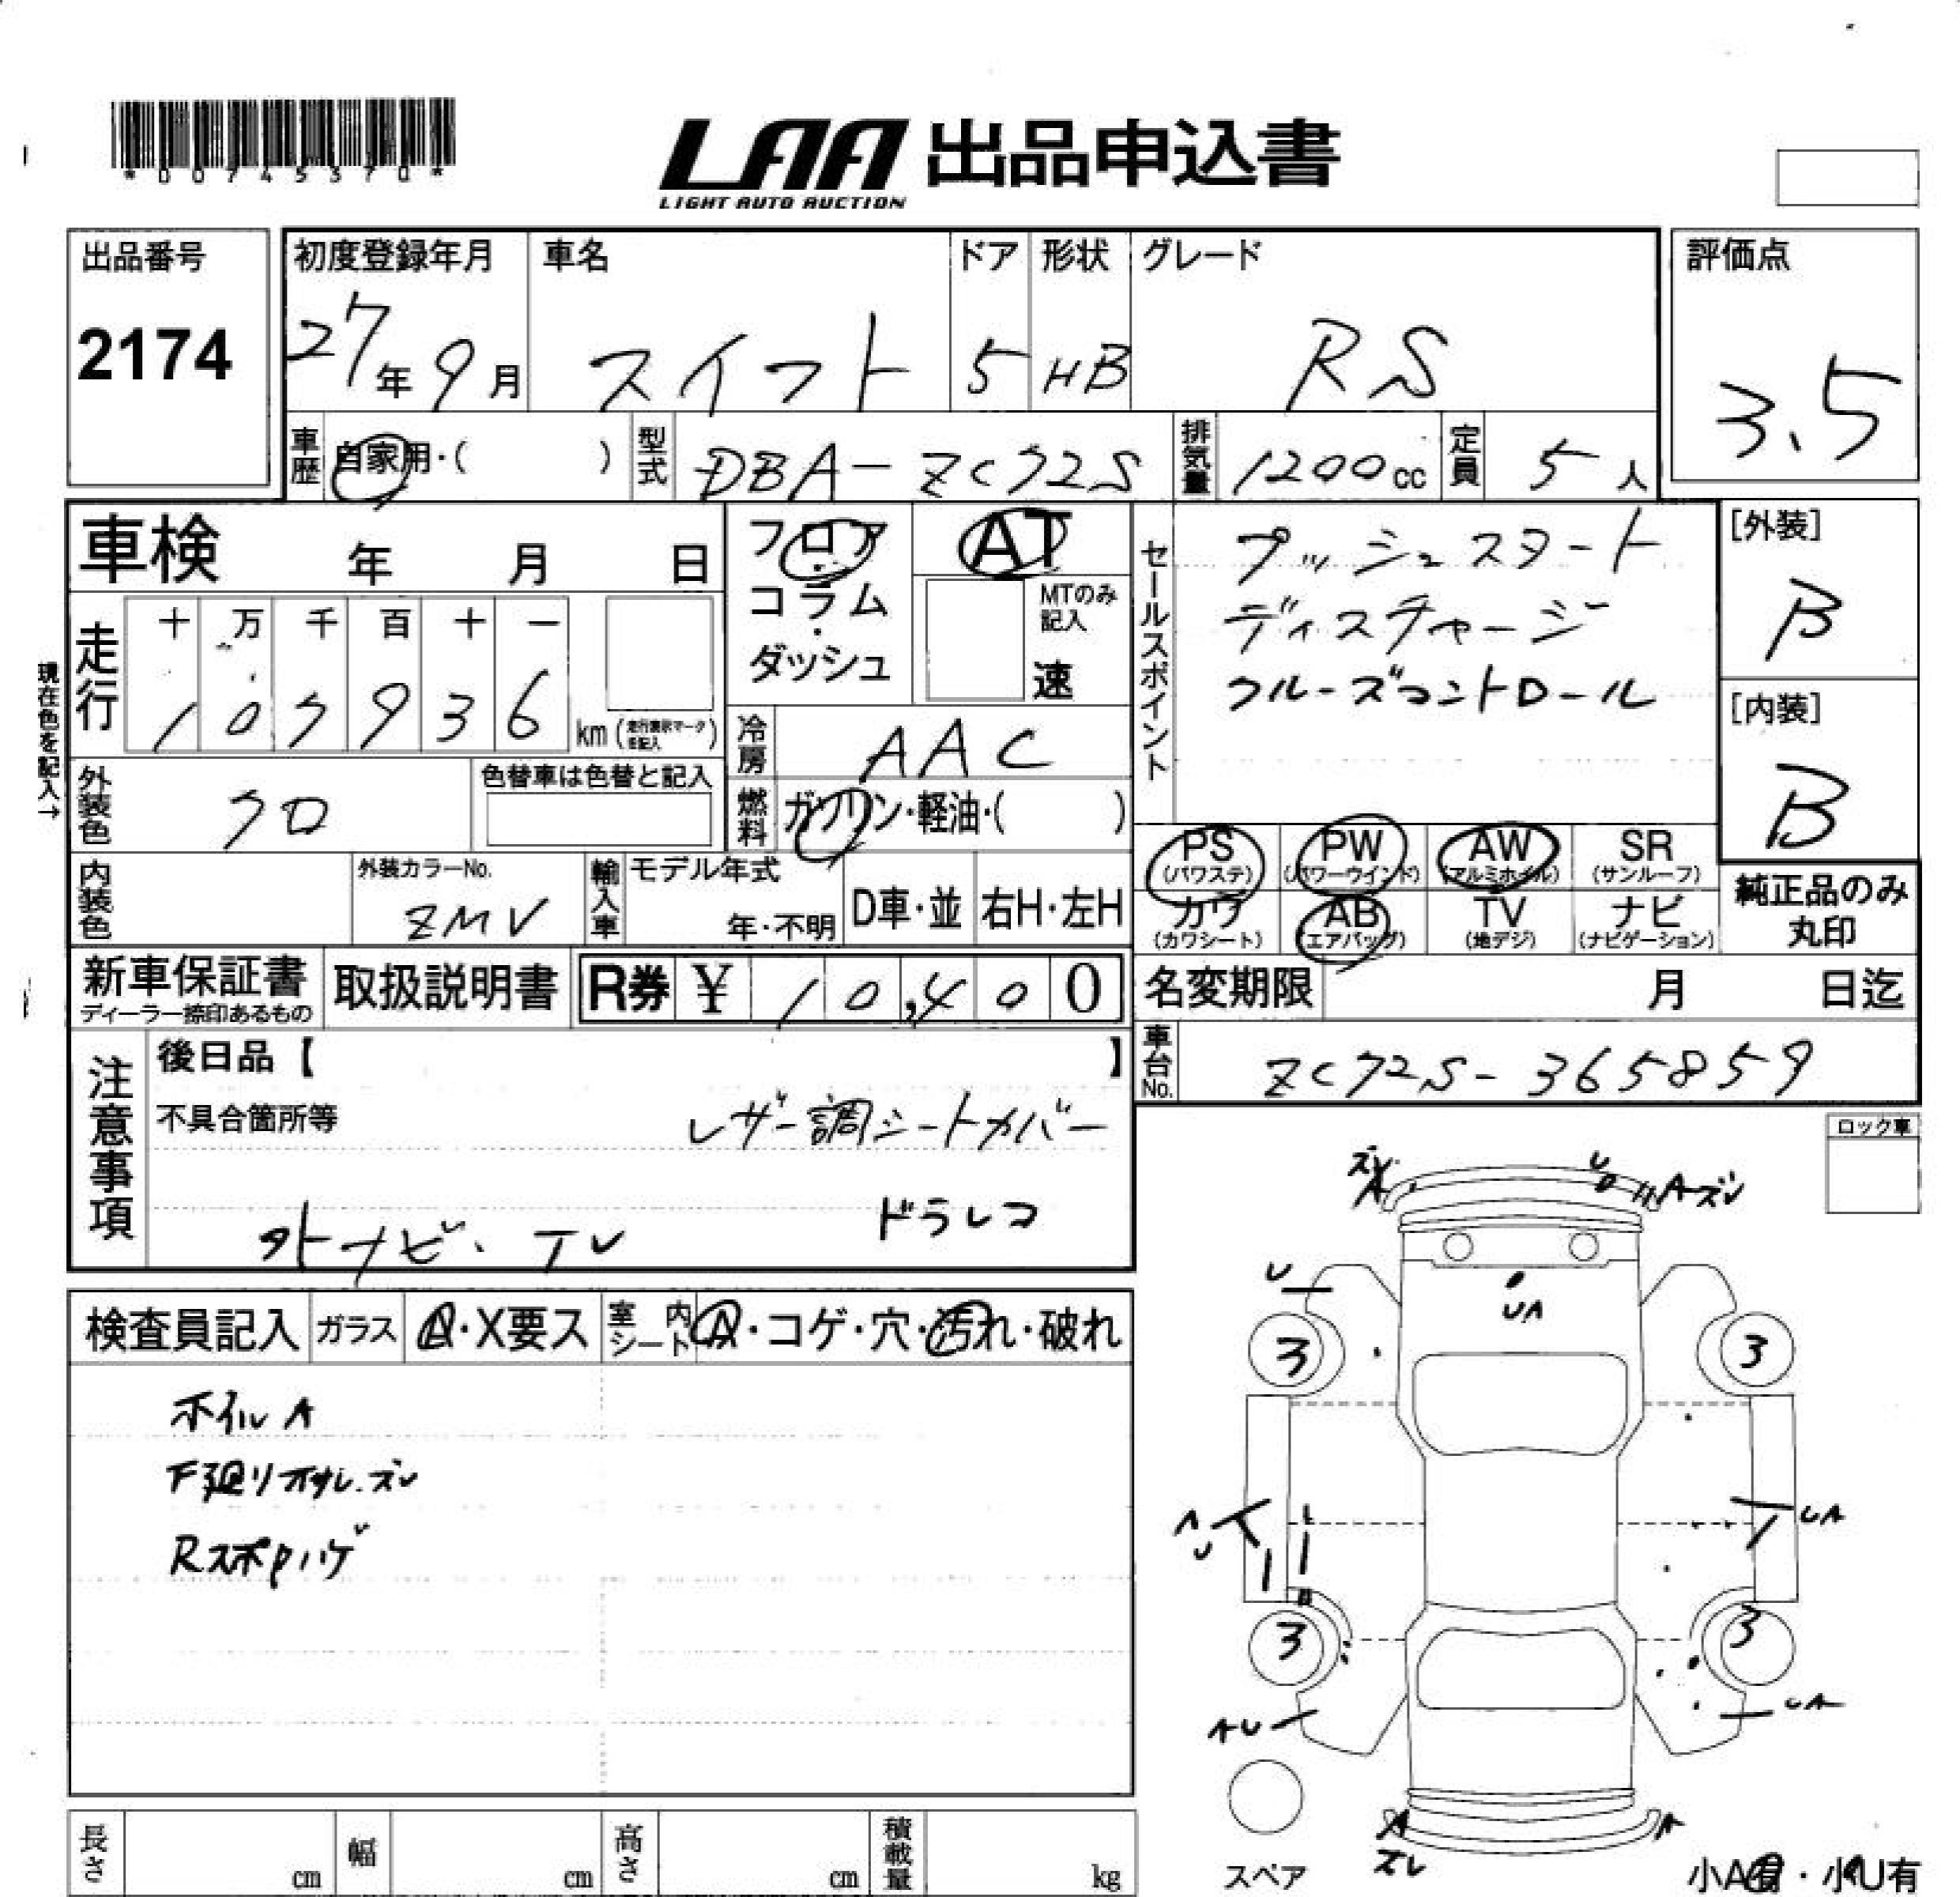 *00745370*
LAA 出品申込書
LIGHT AUTO AUCTION
出品番号 初度登録年月 車名 ドア 形状 グレード 評価点
2174 27年9月 スイフト 5 HB RS 3.5
車歴 自家用・( ) 型式 DBA-ZC72S 排気量 1200cc 定員 5人
車検 年 月 日
フロア・コラム・ダッシュ
AT
MTのみ記入
速
セールスポイント
プッシュスタート
ディスチャージ
クルーズコントロール
[外装]
B
[内装]
B
現在色を記入→
走行 十 万 千 百 十 一
107936 km (走行表示マーク要記入)
冷房 AAC
外装色 クロ
色替車は色替と記入
燃料 ガソリン・軽油・( )
PS (パワステ) PW (パワーウインド) AW (アルミホイル) SR (サンルーフ)
カワ (カワシート) AB (エアバッグ) TV (地デジ) ナビ (ナビゲーション)
純正品のみ丸印
内装色
外装カラーNo. ZMV
輸入車 モデル年式 年・不明 D車・並 右H・左H
新車保証書 ディーラー捺印あるもの
取扱説明書
R券 ¥ 10,400
名変期限 月 日迄
車台No. ZC72S-365859
注意事項
後日品【 】
不具合箇所等
レザー調シートカバー
ドラレコ
外ナビ、TV
ロック車
検査員記入 ガラス A・X要ス 室内シート A・コゲ・穴・汚れ・破れ
ホイルA
F廻りオサレ.ズレ
Rスポハゲ
ズレ A
U
Aズレ
U
UA
3 3
A U
UA
3 3
AU
UA
A ズレ
A
スペア
小A有・小U有
長さ cm 幅 cm 高さ cm 積載量 kg